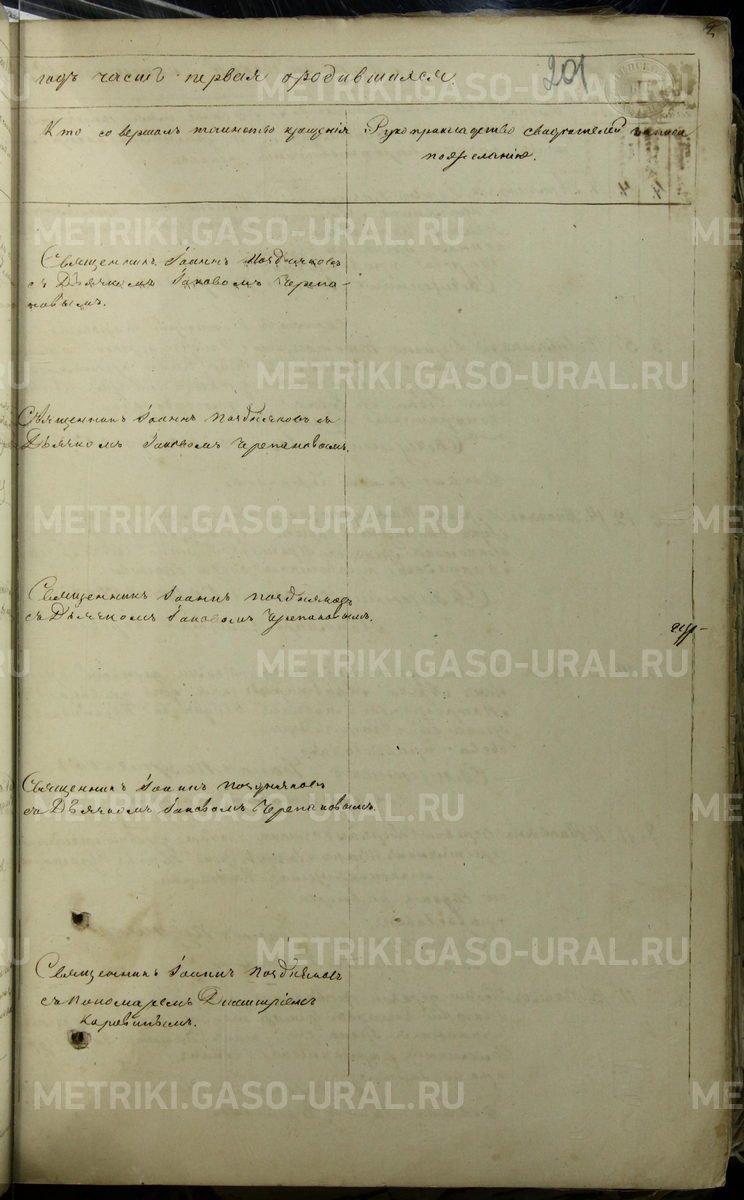 201
годъ часть первая о родившихся.
Кто совершалъ таинство крещенія
Рукоприкладство свидѣтелей записи
по желанію.
Священникъ Іоаннъ Поздняковъ
съ Дьячкомъ Іаковомъ Черепа-
новымъ.
Священникъ Іоаннъ Поздняковъ съ
Дьячкомъ Іаковомъ Черепановымъ.
Священникъ Іоаннъ Поздняковъ
съ Дьячкомъ Іаковомъ Черепановымъ.
Священникъ Іоаннъ Поздняковъ
съ Дьячкомъ Іаковомъ Черепановымъ.
Священникъ Іоаннъ Поздняковъ
съ Пономаремъ Димитріемъ
METRIKI.GASO-URAL.RU